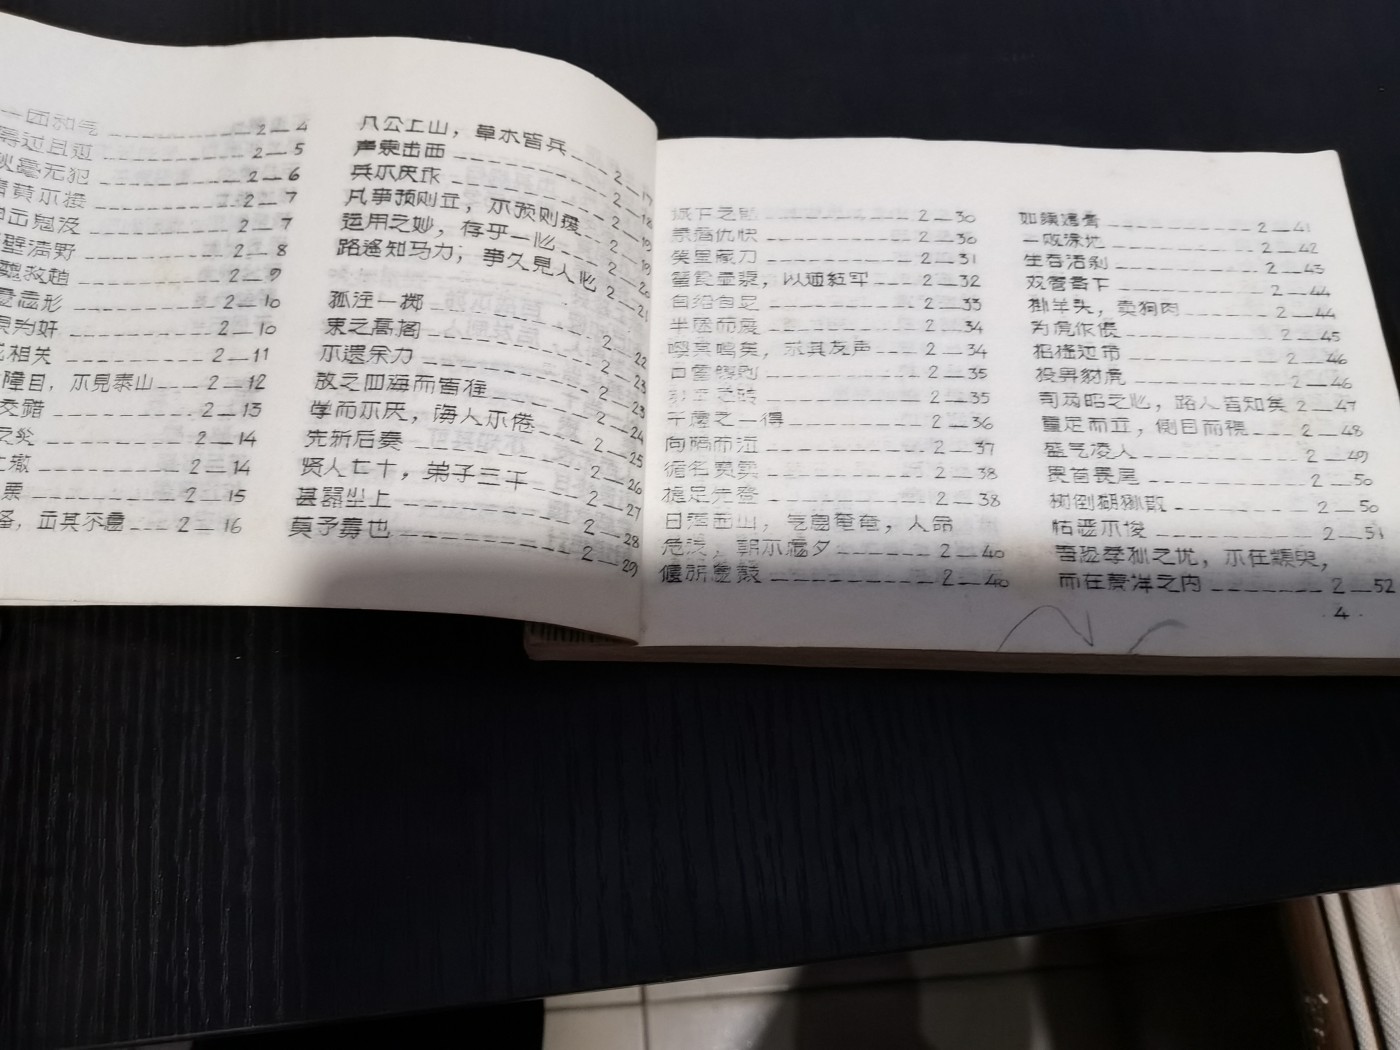 一团和气 2—4
得过且过 2—5
秋毫无犯 2—6
青黄不接 2—7
出鬼没 2—7
壁清野 2—8
魏救赵 2—9
形 2—10
奸 2—10
相关 2—11
障目，不见泰山 2—12
交错 2—13
之 2—14
辙 2—14
票 2—15
，其不意 2—16
八公上山，草木皆兵 2—17
声东击西 2—18
兵不厌诈 2—19
凡事预则立，不预则废 2—19
运用之妙，存乎一心 2—20
路遥知马力，事久见人心 2—21
孤注一掷 2—22
束之高阁 2—23
不遗余力 2—23
放之四海而皆准 2—24
学而不厌，诲人不倦 2—25
先斩后奏 2—26
贤人七十，弟子三千 2—27
甚嚣尘上 2—28
莫予毒也 2—29
城下之盟 2—30
亲痛仇快 2—30
笑里藏刀 2—31
箪食壶浆，以迎红军 2—32
自给自足 2—33
半途而废 2—34
嘤其鸣矣，求其友声 2—34
口蜜腹剑 2—35
2—35
千虑之一得 2—36
向隅而泣 2—37
循名责实 2—38
捷足先登 2—38
日薄西山，气息奄奄，人命
危浅，朝不虑夕 2—40
偃旗息鼓 2—40
2—41
一败涂地 2—42
生吞活剥 2—43
双管齐下 2—44
挂羊头，卖狗肉 2—44
为虎作伥 2—45
招摇过市 2—46
投畀豺虎 2—46
司马昭之心，路人皆知矣 2—47
重足而立，侧目而视 2—48
盛气凌人 2—49
畏首畏尾 2—50
树倒猢狲散 2—50
怙恶不悛 2—51
吾恐季孙之忧，不在颛臾，
而在萧墙之内 2—52
·4·